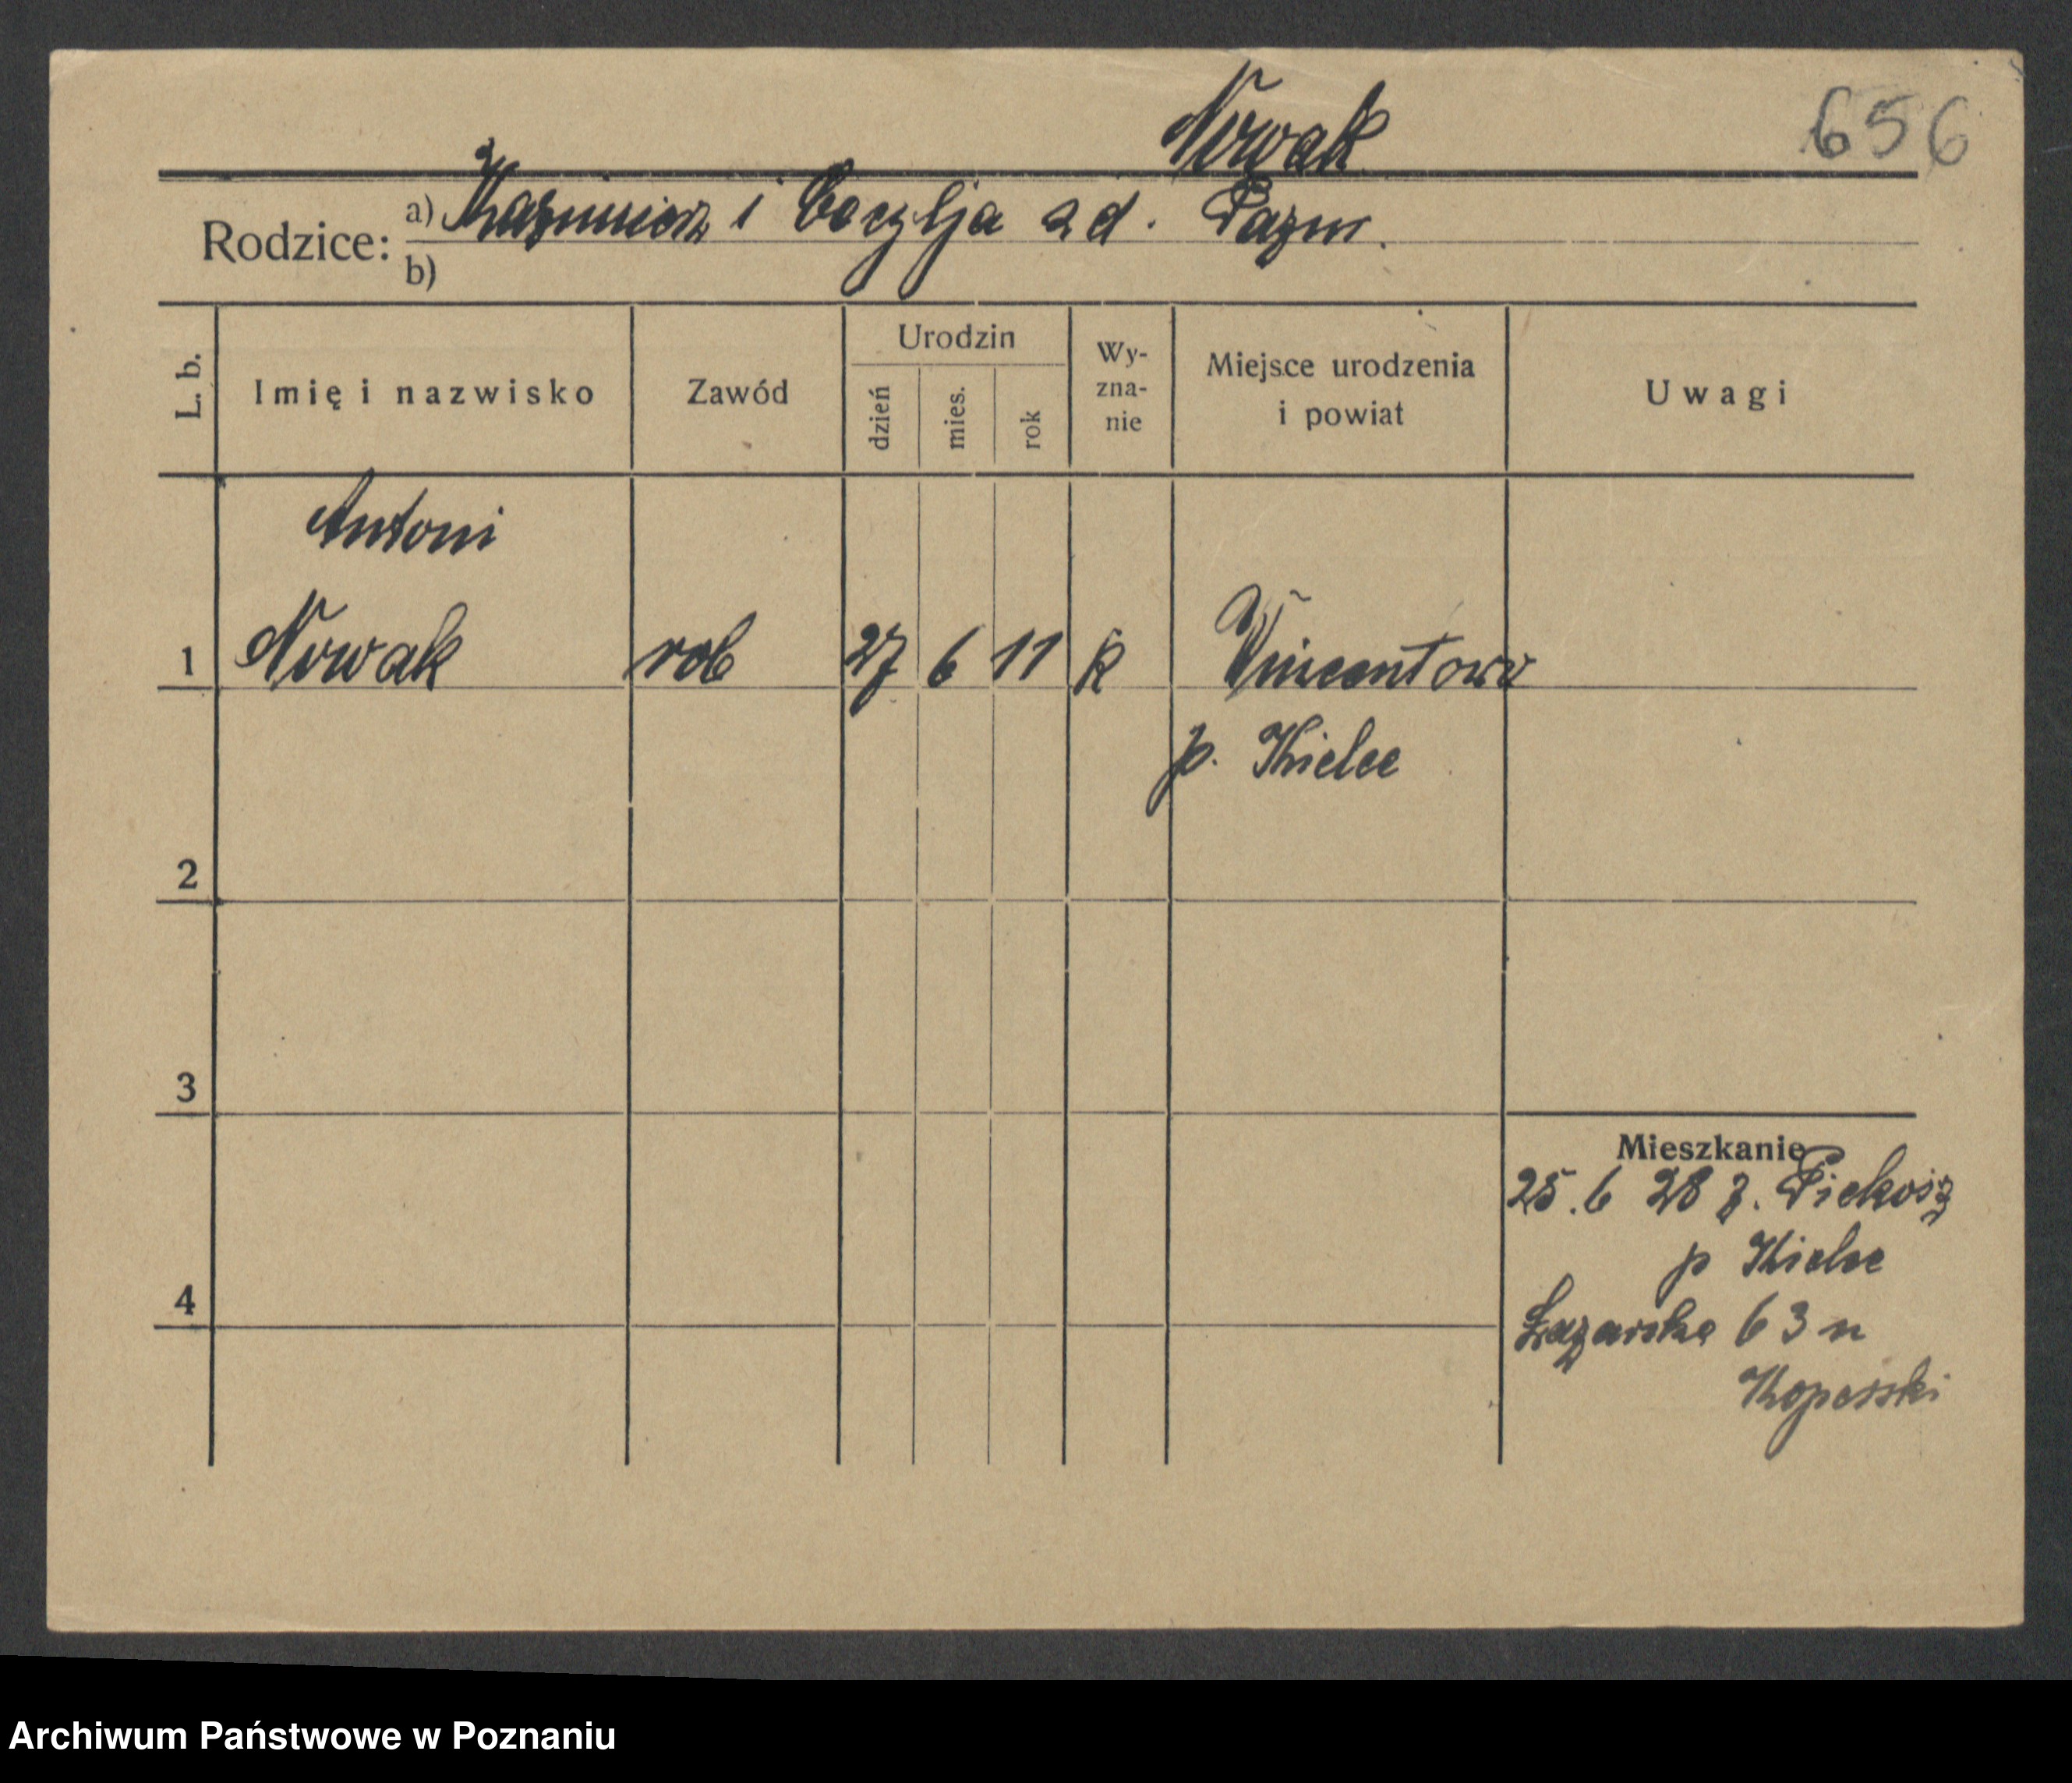 Nowak
656
Rodzice: a) Kazimierz i Cecylja z d. Pazur.
b)
L. b. Imię i nazwisko Zawód Urodzin dzień mies. rok Wyznanie Miejsce urodzenia i powiat Uwagi
Antoni
1 Nowak rob 27 6 11 k Wincentow
p. Kielce
2
3
Mieszkanie
25.6 28 z.
p Kielce
4
Łazarska 63 u
Koperski
Archiwum Państwowe w Poznaniu